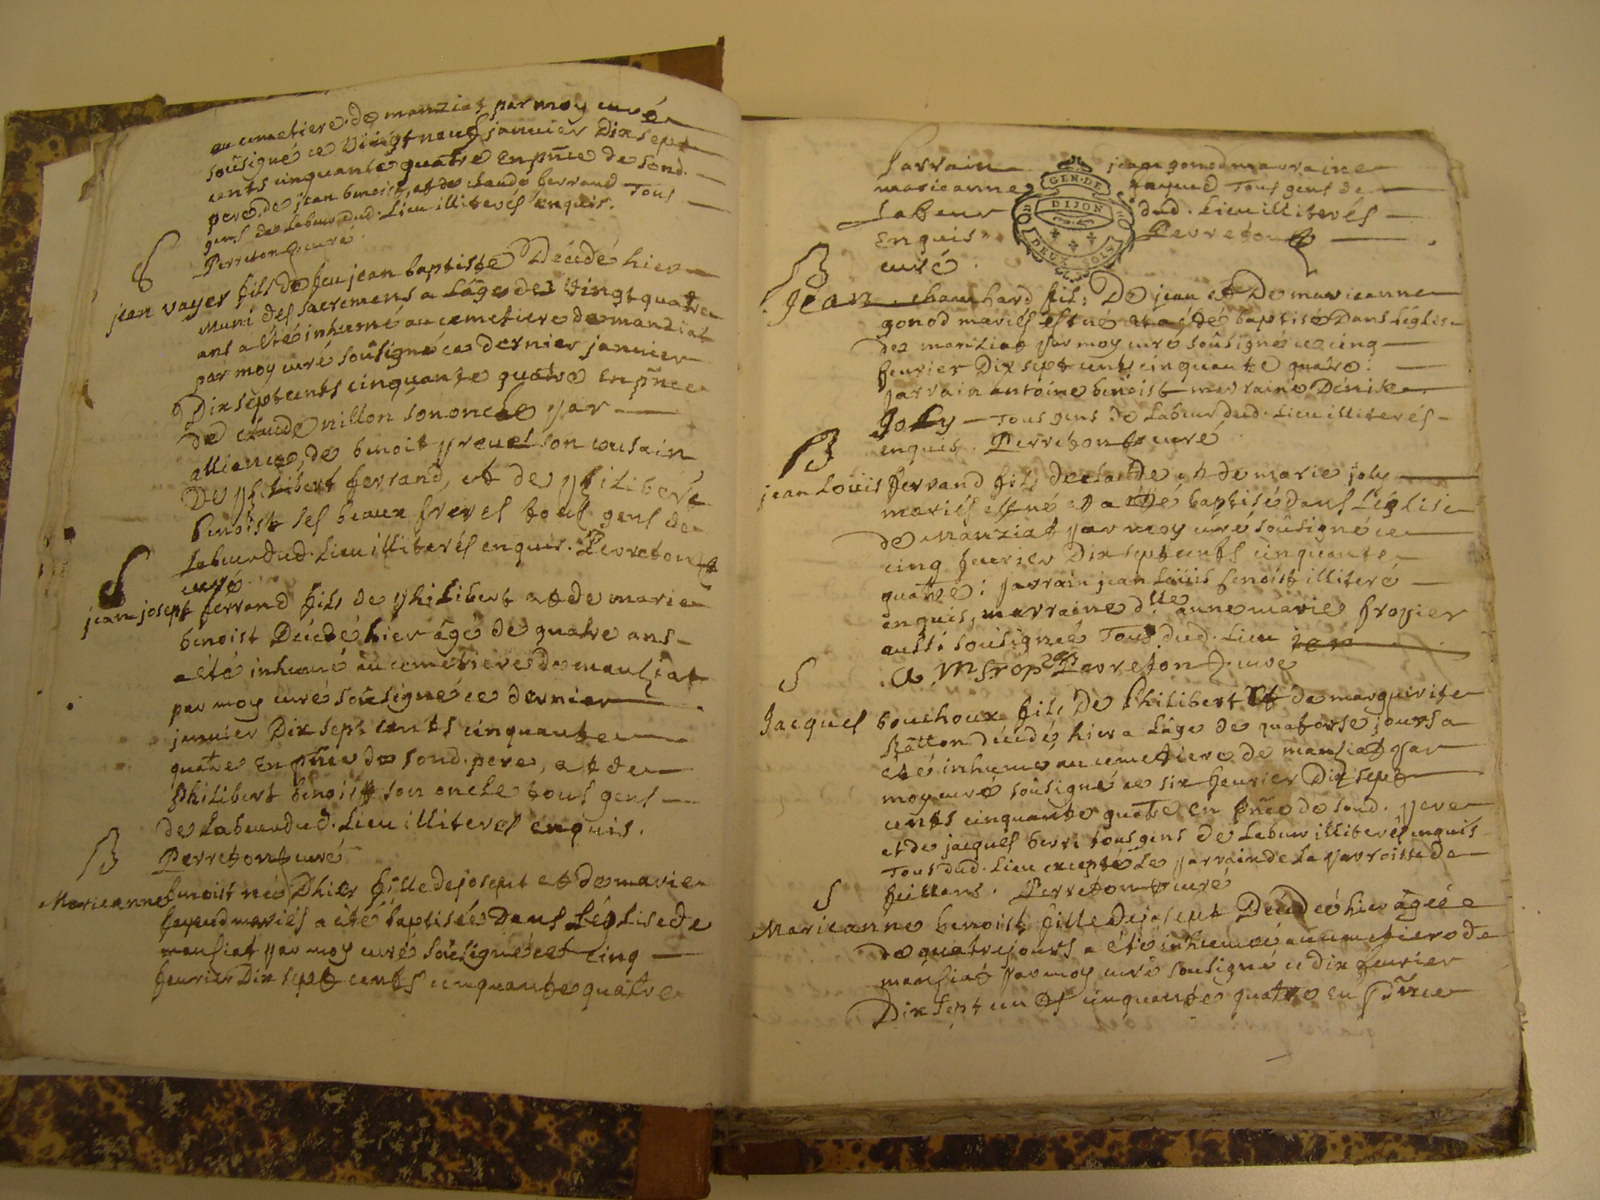 au cimetiere de manziat par moy curé
soûsigné ce vingt neuf janvier Dix sept
cents cinquante quatre En pñce de sond.
pere de jean benoist, et de claude ferrand Tous
gens de Labeur dud. Lieu illiterés enquis.
Perreton curé.
S
jean vayer fils de feu jean baptiste Décédé hier
muni des sacremens a Lâge de vingt quatre
ans a été inhumé au cemetiere de manziat
par moy curé soûsigné ce dernier janvier
Dix sept cents cinquante quatre En pñce
de claude nillon son oncle par
alliance, de benoit prevel son cousain
De philibert ferrand, et de philibert
Benoist ses beaux freres tous gens de
Labeur dud. Lieu illiterés enquis. Perreton
curé
S
jean josept ferrand fils de philibert et de marie
benoist Décédé hier âgé de quatre ans
a été inhumé au cemetiere de manziat
par moy curé soûsigné ce dernier
janvier Dix sept cents cinquante
quatre En pñce de sond. pere, et de
philibert benoist son oncle tous gens
de Labeur dud. Lieu illiterés enquis.
Perreton curé
B
Marieanne benoist née D'hier fille de josept et de marie
mariés a été baptisée Dans L'église de
mansiat par moy curé soûsigné cet cinq
fevrier Dix sept cents cinquante quatre
Parrain jean gonod marraine
marieanne Tous gens de
Labeur dud. Lieu illiterés
Enquis Perreton
curé.
GEN. DE
DIJON
DEUX SOLS
B
Jean chanchard fils De jean et De marieanne
gonod mariés est né et a été baptisé Dans L'eglise
de manziat par moy curé soûsigné ce cinq
fevrier Dix sept cents cinquante quatre.
parrain antoine benoist marraine Denise
Joly Tous gens de Labeur dud. Lieu illiterés
enquis. Perreton curé
B
jean Louis ferrand fils de claude et de marie joly
mariés est né et a été baptisé dans L'église
de Manziat par moy curé soûsigné ce
cinq fevrier Dix sept cents cinquante
quatre: parrain jean Loüis benoist illiteré
enquis, marraine d.lle anne marie fropier
aussi soûsignée Tous dud. Lieu
A M frop Perreton curé
S
Jacques bouchoux fils De Philibert Et de marguerite
décédé hier a Lâge de quatorse jours a
eté inhumé au cimetiere de mansiat par
moy curé soûsigné ce six fevrier Dix sept
cents cinquante quatre en pñce de sond. pere
et de jacques berri tous gens de Labeur illiterés enquis
Tous dud. Lieu excepté Le parrain de La parroisse de
feillens. Perreton curé
S
Marieanne benoist fille de josept Décédée hier âgée
de quatre jours a été inhumée au cimetiere de
mansiat par moy curé soûsigné ce dix fevrier
Dix sept cents cinquante quatre en pñce